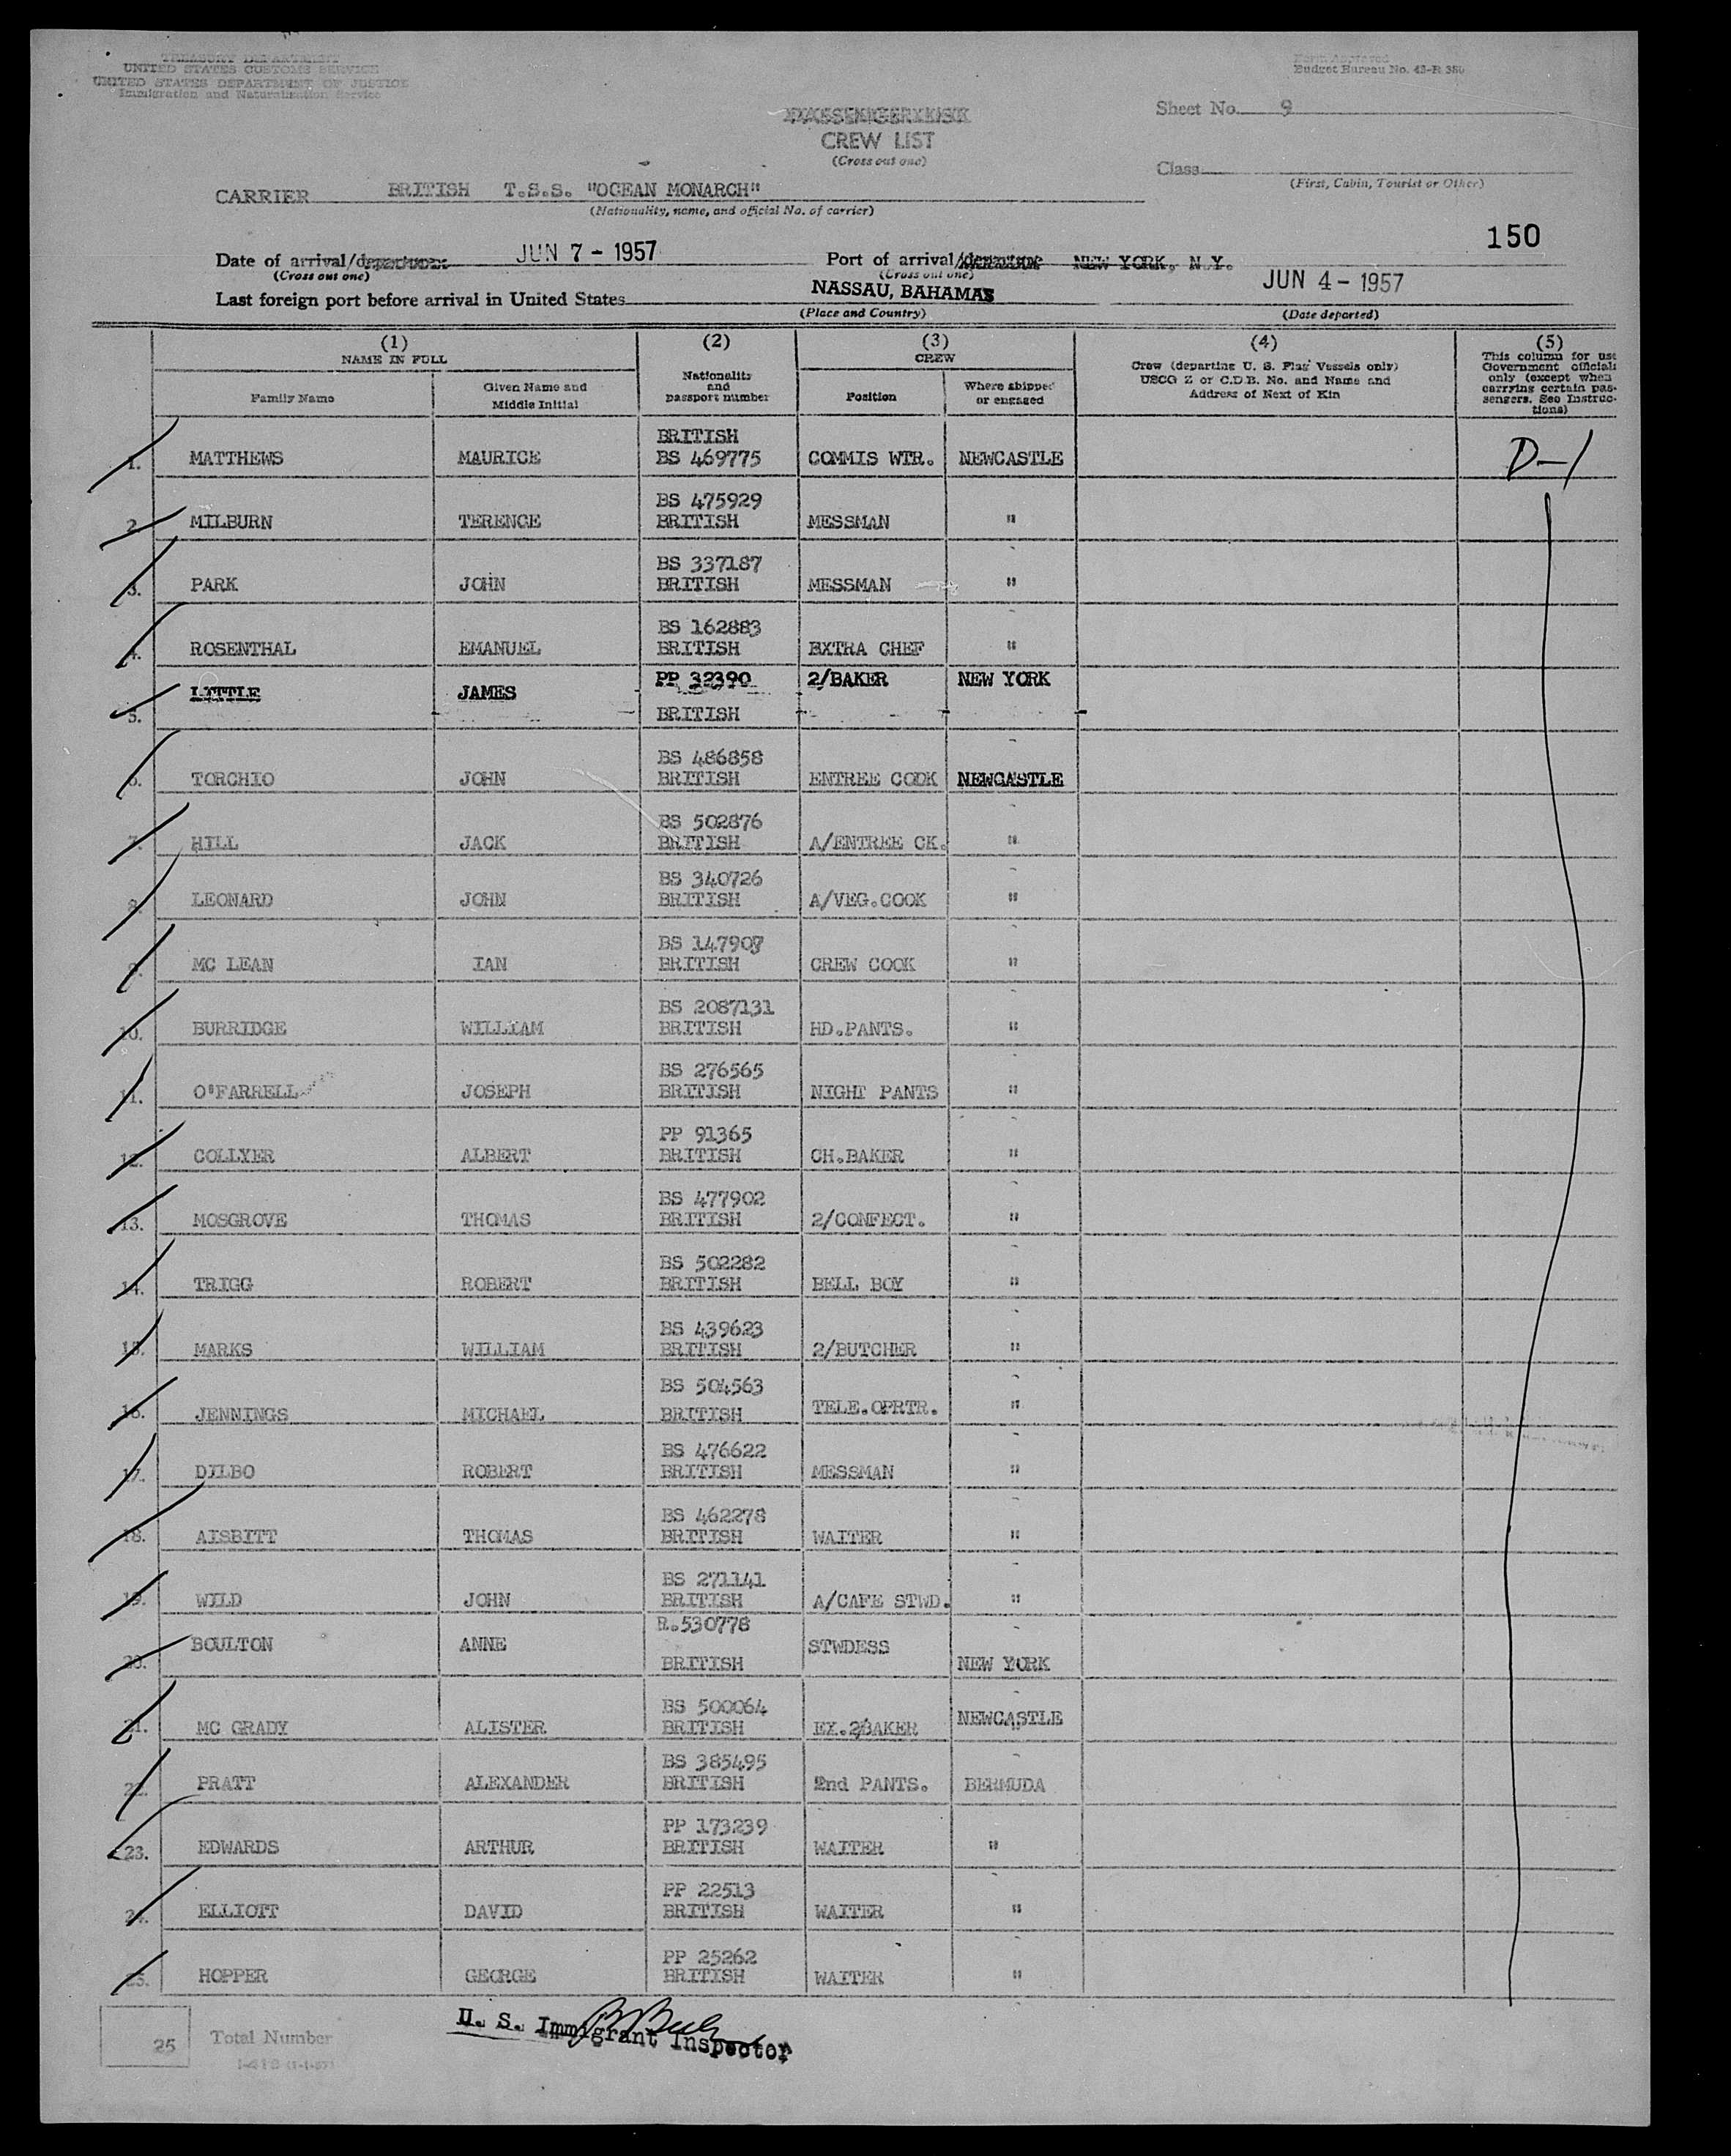 TREASURY DEPARTMENT
UNITED STATES CUSTOMS SERVICE
UNITED STATES DEPARTMENT OF JUSTICE
Immigration and Naturalization Service
Form Approved
Budget Bureau No. 43-R 380
Sheet No. 9
PASSENGER LIST
CREW LIST
(Cross out one)
Class
(First, Cabin, Tourist or Other)
CARRIER BRITISH T.S.S. "OCEAN MONARCH"
(Nationality, name, and official No. of carrier)
150
Date of arrival/departure JUN 7 - 1957 Port of arrival/departure NEW YORK, N.Y.
(Cross out one) (Cross out one)
Last foreign port before arrival in United States NASSAU, BAHAMAS JUN 4 - 1957
(Place and Country) (Date departed)
(1) (2) (3) (4) (5)
NAME IN FULL CREW
Family Name Given Name and Middle Initial Nationality and passport number Position Where shipped or engaged Crew (departing U. S. Flag Vessels only) USCG Z or C.D.B. No. and Name and Address of Next of Kin This column for use Government officials only (except when carrying certain passengers. See Instructions)
BRITISH
1. MATTHEWS MAURICE BS 469775 COMMIS WTR. NEWCASTLE D-1
BS 475929
2. MILBURN TERENCE BRITISH MESSMAN "
BS 337187
3. PARK JOHN BRITISH MESSMAN "
BS 162883
4. ROSENTHAL EMANUEL BRITISH EXTRA CHEF "
PP 32390 2/BAKER NEW YORK
LITTLE JAMES
5. BRITISH
BS 486858
6. TORCHIO JOHN BRITISH ENTREE COOK NEWCASTLE
BS 502876
7. HILL JACK BRITISH A/ENTREE CK. "
BS 340726
8. LEONARD JOHN BRITISH A/VEG.COOK "
BS 147908
9. MC LEAN IAN BRITISH CREW COOK "
BS 2087131
10. BURRIDGE WILLIAM BRITISH HD.PANTS. "
BS 276565
11. O'FARRELL JOSEPH BRITISH NIGHT PANTS "
PP 91365
12. COLLYER ALBERT BRITISH CH.BAKER "
BS 477902
13. MOSGROVE THOMAS BRITISH 2/CONFECT. "
BS 502282
14. TRIGG ROBERT BRITISH BELL BOY "
BS 439623
15. MARKS WILLIAM BRITISH 2/BUTCHER "
BS 504563
16. JENNINGS MICHAEL BRITISH TELE.OPRTR. "
BS 476622
17. DILBO ROBERT BRITISH MESSMAN "
BS 462278
18. AISBITT THOMAS BRITISH WAITER "
BS 271141
19. WILD JOHN BRITISH A/CAFE STWD. "
R.530778
BOULTON ANNE STWDESS
20. BRITISH NEW YORK
BS 500064
21. MC GRADY ALISTER BRITISH EX.2/BAKER NEWCASTLE
BS 385495
22. PRATT ALEXANDER BRITISH 2nd PANTS. BERMUDA
PP 173239
23. EDWARDS ARTHUR BRITISH WAITER "
PP 22513
24. ELLIOTT DAVID BRITISH WAITER "
PP 25262
25. HOPPER GEORGE BRITISH WAITER "
U. S. Immigrant Inspector
25 Total Number